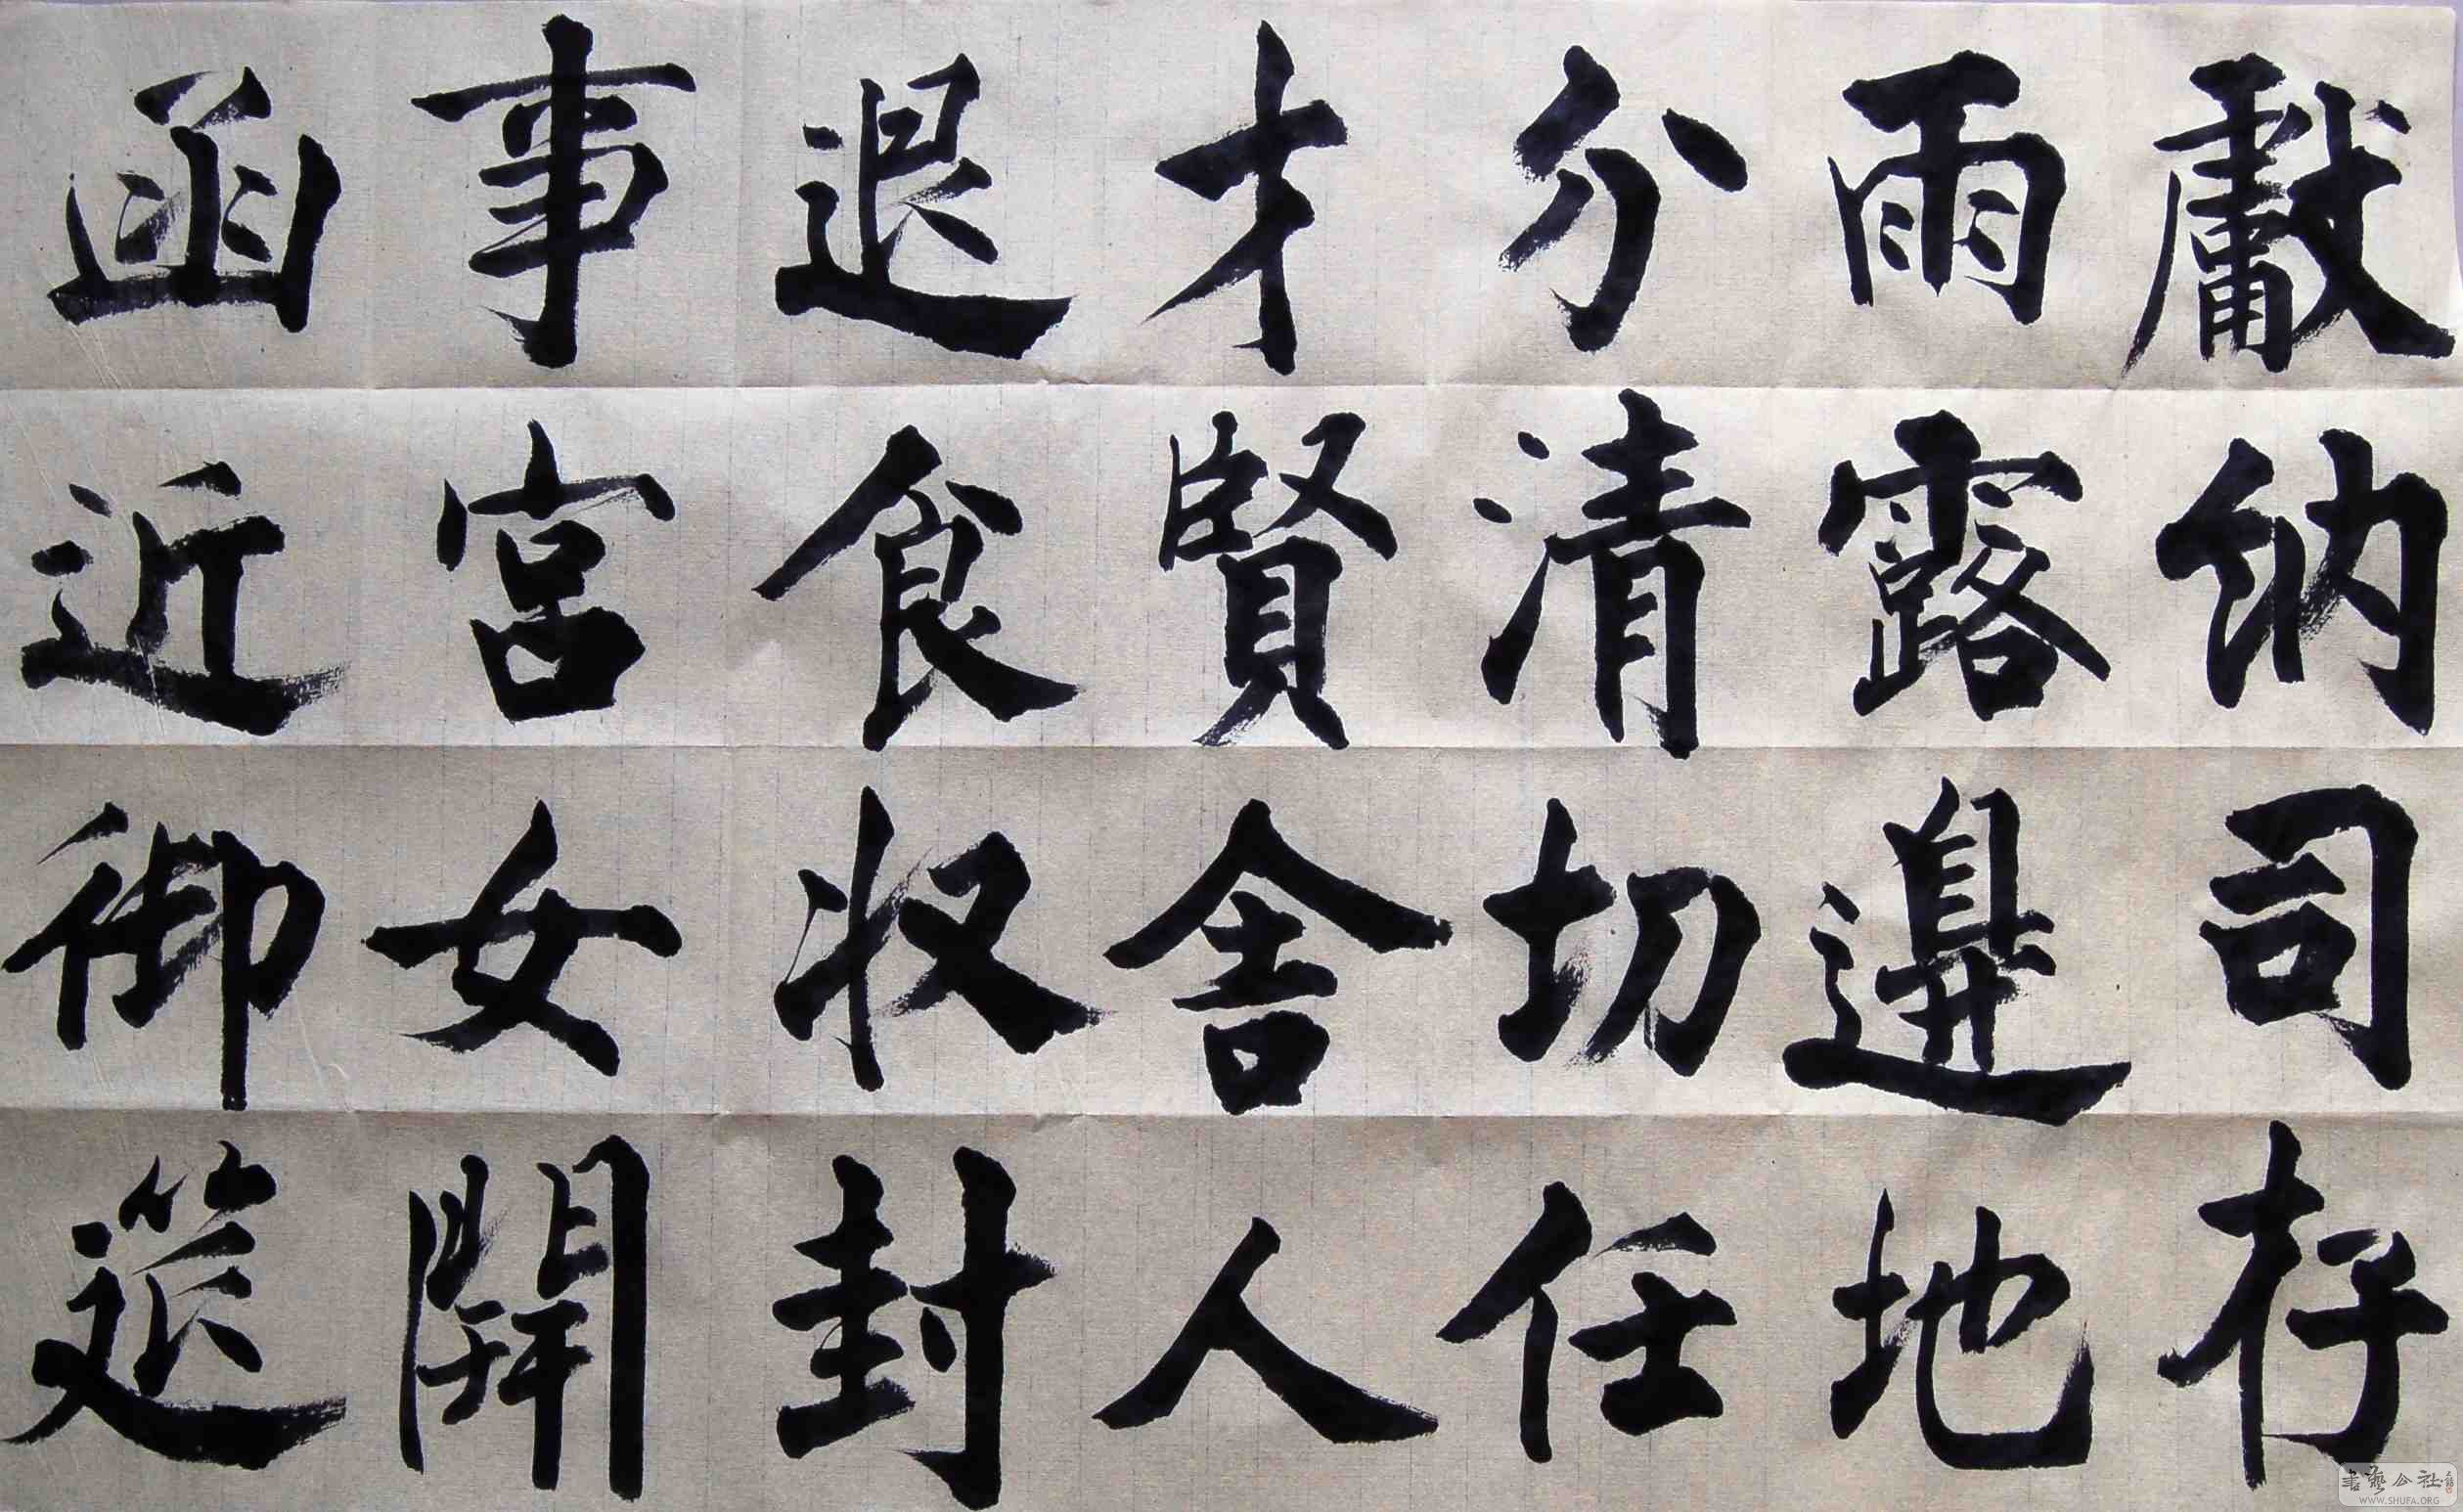 獻納司存
雨露邊地
分清切任
才賢舍人
退食収封
事宮女開
函近御筵
書藝公社
WWW.SHUFA.ORG